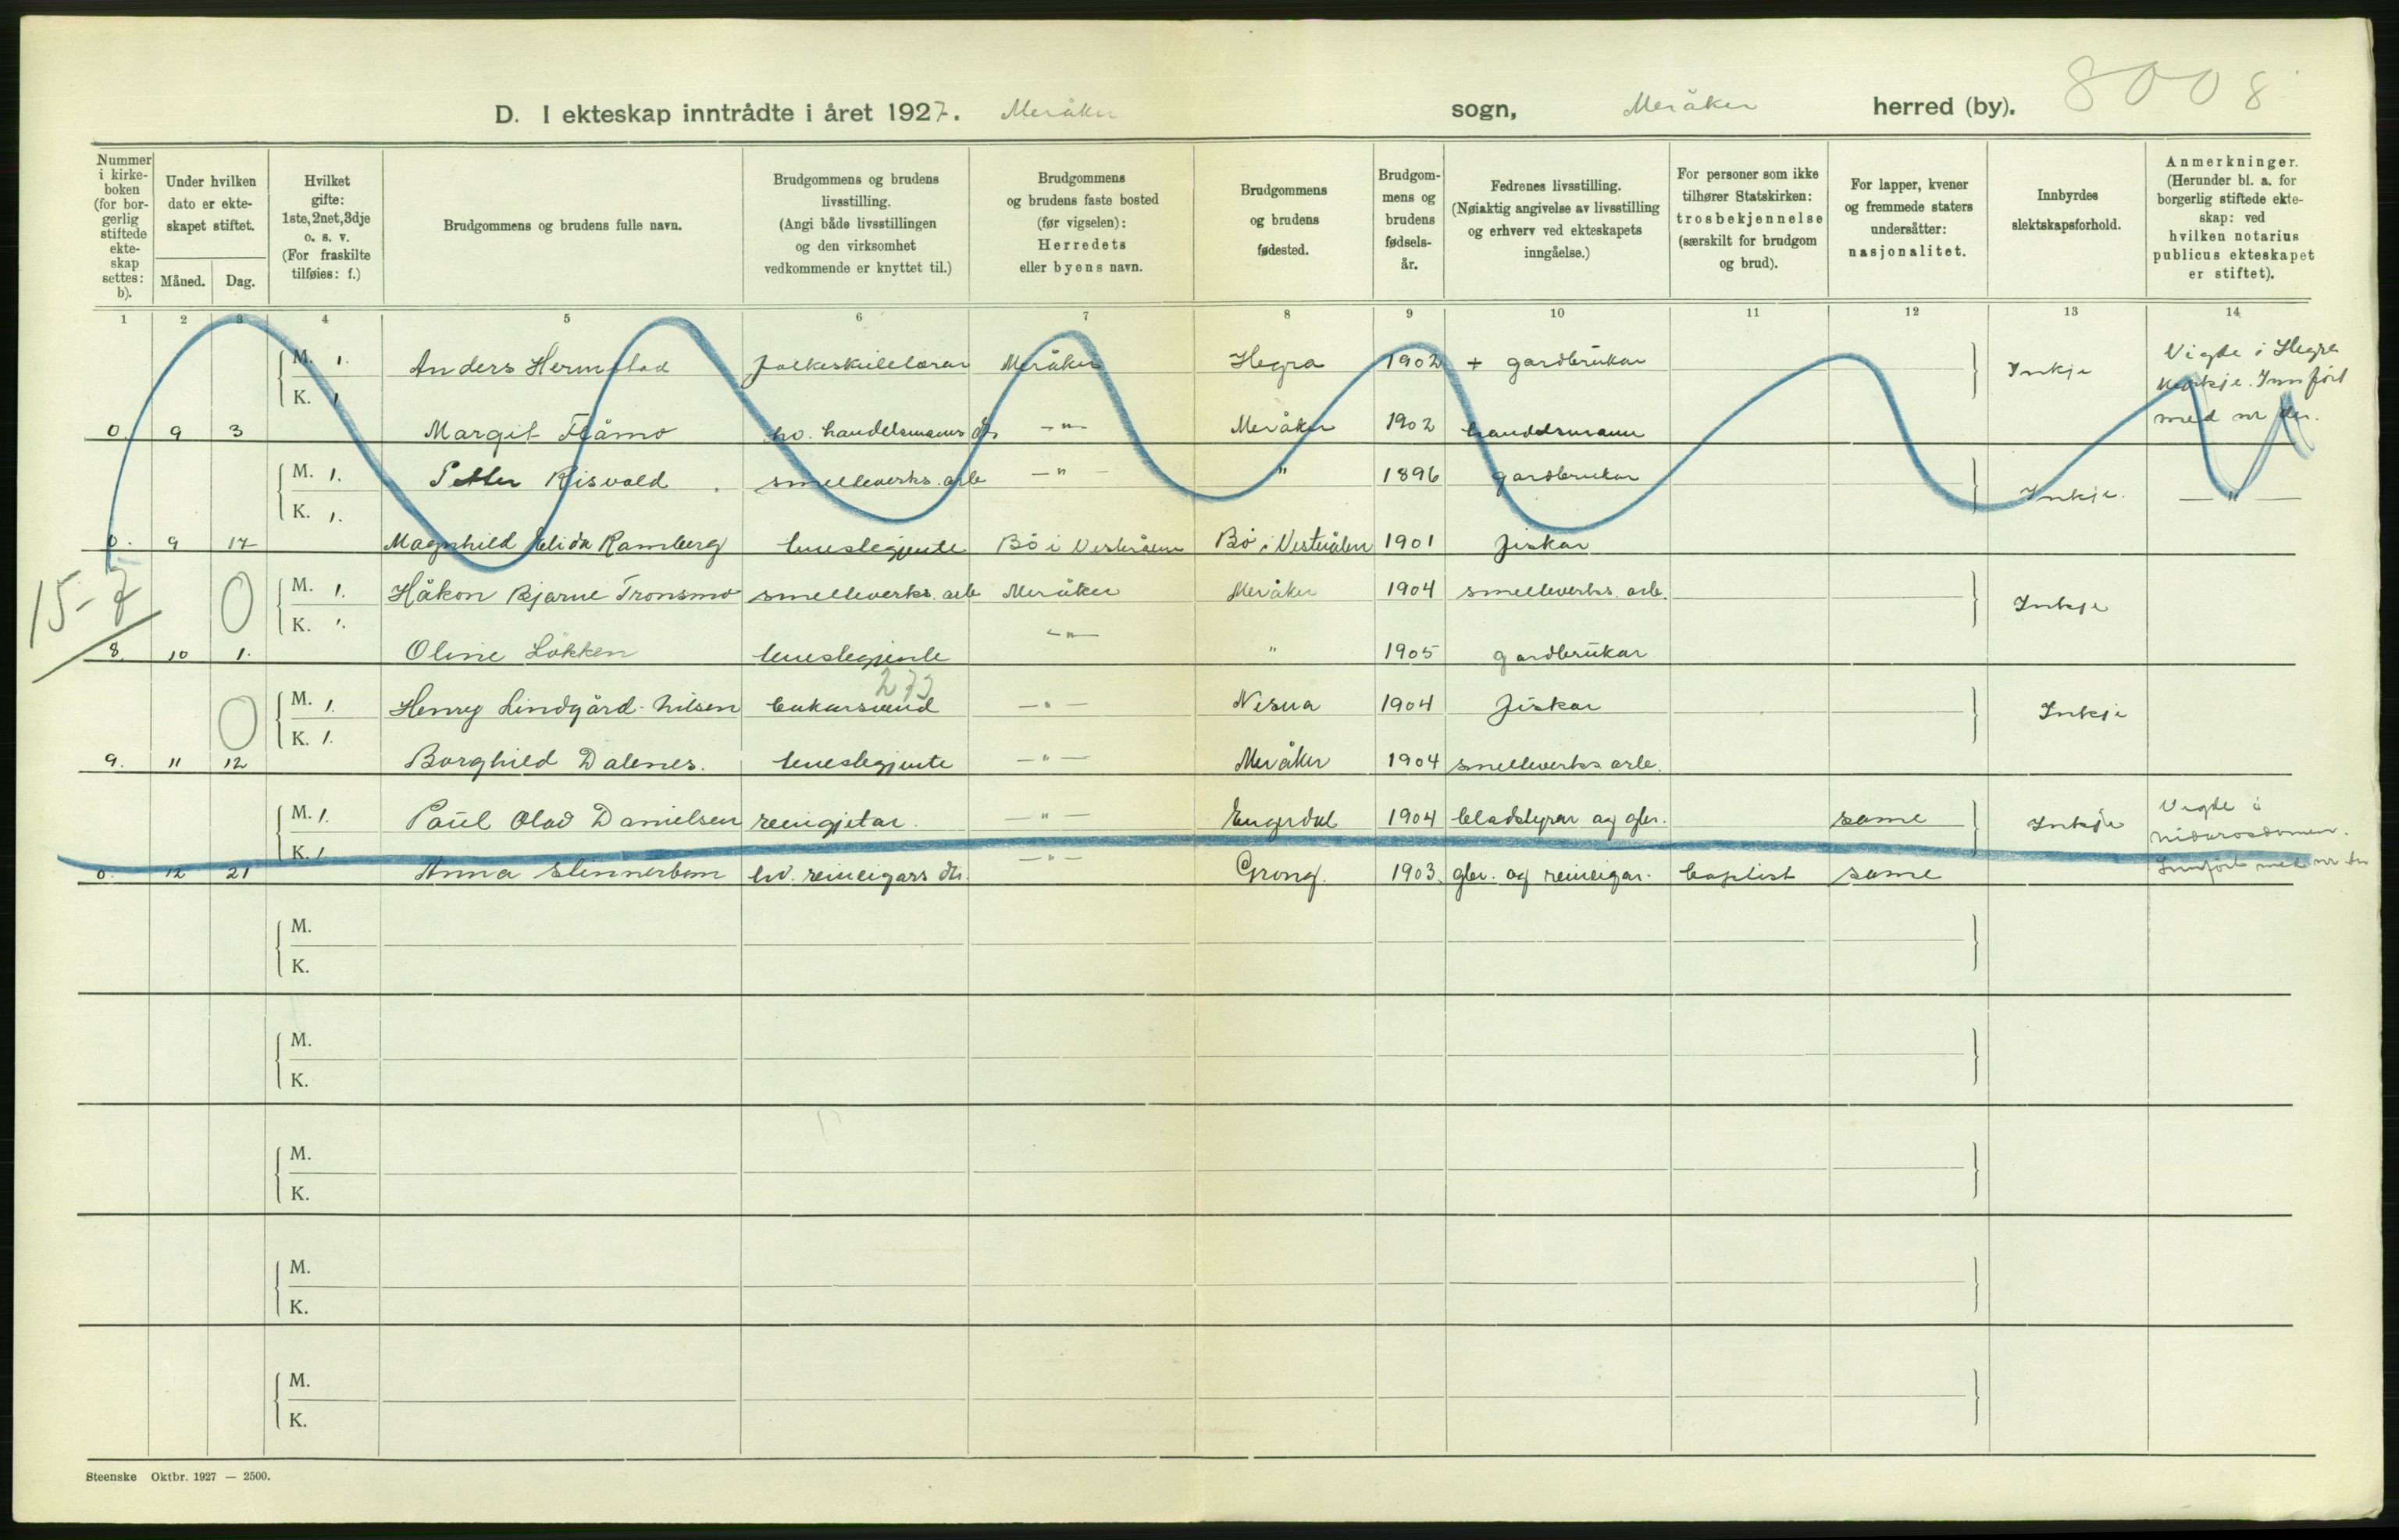 8008
D. I ekteskap inntrådte i året 1927. Meråker sogn, Meråker herred (by).
Nummer i kirke- boken (for bor- gerlig stiftede ekte- skap settes: b).
Under hvilken dato er ekte- skapet stiftet.
Måned. Dag.
Hvilket gifte: 1ste, 2net, 3dje o. s. v. (For fraskilte tilføies: f.)
Brudgommens og brudens fulle navn.
Brudgommens og brudens livsstilling. (Angi både livsstillingen og den virksomhet vedkommende er knyttet til.)
Brudgommens og brudens faste bosted (før vigselen): Herredets eller byens navn.
Brudgommens og brudens fødested.
Brudgom- mens og brudens fødsels- år.
Fedrenes livsstilling. (Nøiaktig angivelse av livsstilling og erhverv ved ekteskapets inngåelse.)
For personer som ikke tilhører Statskirken: trosbekjennelse (særskilt for brudgom og brud).
For lapper, kvener og fremmede staters undersåtter: nasjonalitet.
Innbyrdes slektskapsforhold.
Anmerkninger. (Herunder bl. a. for borgerlig stiftede ekte- skap: ved hvilken notarius publicus ekteskapet er stiftet).
1 2 3 4 5 6 7 8 9 10 11 12 13 14
M. 1. Anders Hermstad folkeskulelærar Meråker Hegra 1902 + gardbrukar Inkje Vigde i Hegra kyrkje. Innført
K. 1
0. 9 3 Margit Flåmo hv. handelsmanns dtr. —"— Meråker 1902 handelsmann med nr der.
M. 1. Petter Risvold smelteverks. arb —"— " 1896 gardbrukar Inkje. —"—
K. 1.
0. 9 17 Magnhild Elida Ramberg tenestegjente Bö i Vesterålen Bö i Vesterålen 1901 fiskar
15-7
M. 1. Håkon Bjarne Tronsmo smelteverks. arb Meråker Meråker 1904 smelteverks. arb. Inkje
0
K. 1.
8. 10 1. Oline Lökken tenestegjente —"— " 1905 gardbrukar
273
M. 1. Henry Lindgård-Nilsen bakarsvend —"— Nesna 1904 fiskar Inkje
0
K. 1.
9. 11 12 Borghild Dalenes. tenestegjente —"— Meråker 1904 smelteverks arb.
M. 1. Paul Olav Danielsen reingjetar. —"— Engerdal 1904 bladstyrar og gbr. same Inkje Vigde i
K. 1 nidarosdomen.
0. 12 21 Anna Stinnerbom hv. reineigars dtr. —"— Grong. 1903. gbr. og reineigar. baptist same Innført med nr der
M.
K.
M.
K.
M.
K.
M.
K.
M.
K.
Steenske Oktbr. 1927 — 2500.